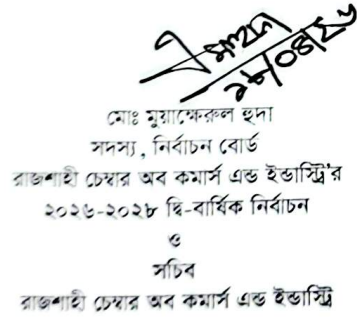 ২৮/০৪/২৬
মোঃ মুয়াক্ষেরুল হুদা
সদস্য, নির্বাচন বোর্ড
রাজশাহী চেম্বার অব কমার্স এন্ড ইন্ডাস্ট্রি'র
২০২৬-২০২৮ দ্বি-বার্ষিক নির্বাচন
ও
সচিব
রাজশাহী চেম্বার অব কমার্স এন্ড ইন্ডাস্ট্রি